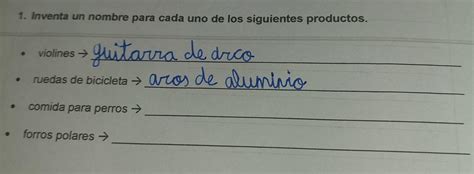 1. Inventa un nombre para cada uno de los siguientes productos.
• violines → guitarra de arco
• ruedas de bicicleta → aros de aluminio
• comida para perros →
• forros polares →